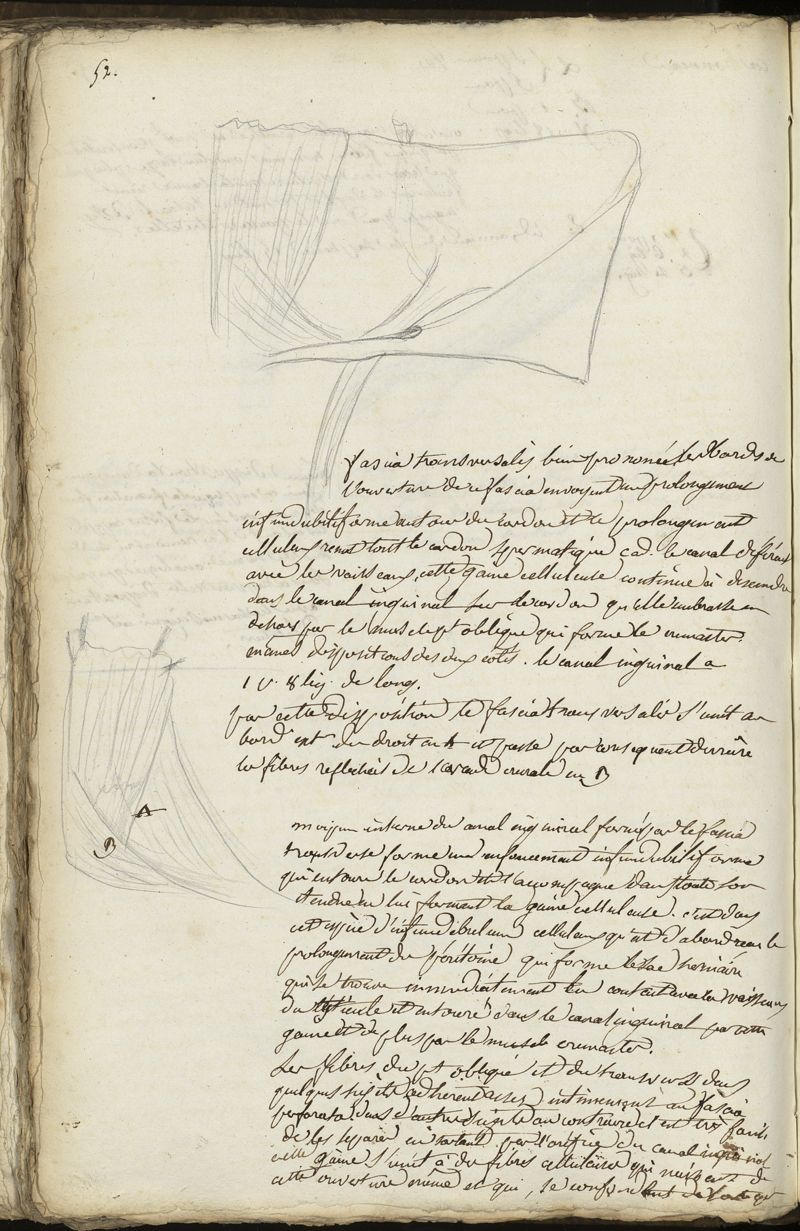 52.
fascia transversalis bien prononcé les bords de
l'ouverture de ce fascia envoyent un prolongement
infundibiliforme autour du cordon et ce prolongement
celluleux revet tout le cordon spermatique cad. le canal déférent
avec les vaisseaux, cette gaine celluleuse continue à descendre
dans le canal inguinal sur le cordon qu'elle embrasse en
dehors par le muscle pt oblique qui forme le cremaster.
mêmes dispositions des deux cotés. le canal inguinal a
1 p. 8 lig. de long.
par cette disposition le fascia transversalis s'unit au
bord ext du droit ant et passe par consequent derrière
les fibres reflechies de l'arcade crurale en B
A
B
interne du canal inguinal formé par le fascia
transverse forme un enfoncement infundibiliforme
qui entoure le cordon et l'accompagne dans toute son
etendue en lui formant la gaine celluleuse. c'est dans
cet espèce d'infundibulum celluleux qu'est d'abord reçu le
prolongement du péritoine qui forme le sac herniaire
qui se trouve immédiatement en contact avec les vaisseaux
du testicule et entouré dans le canal inguinal par cette
gaine et de plus par le muscle cremaster.
Les fibres du pt oblique et du transverse dans
quelques sujets adhèrent assez intimement au fascia
dans d'autres sujets au contraire il est très facile
de les séparer en sortant par l'orifice du canal inguinal
cette gaine s'unit à des fibres celluleuses qui naissent de
cette ouverture même et qui, se confondent